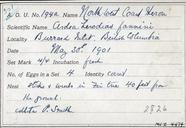 A. O. U. No. 194a Name Northwest Coast Heron
Scientific Name Ardea herodias fannini
Locality Burrard Inlet, British Columbia
Date May 30th 1901
Set Mark 4/4 Incubation fresh
No. of Eggs in Set 4 Identity
Nest Sticks & weeds in Fir tree 40 feet from
the ground
2826